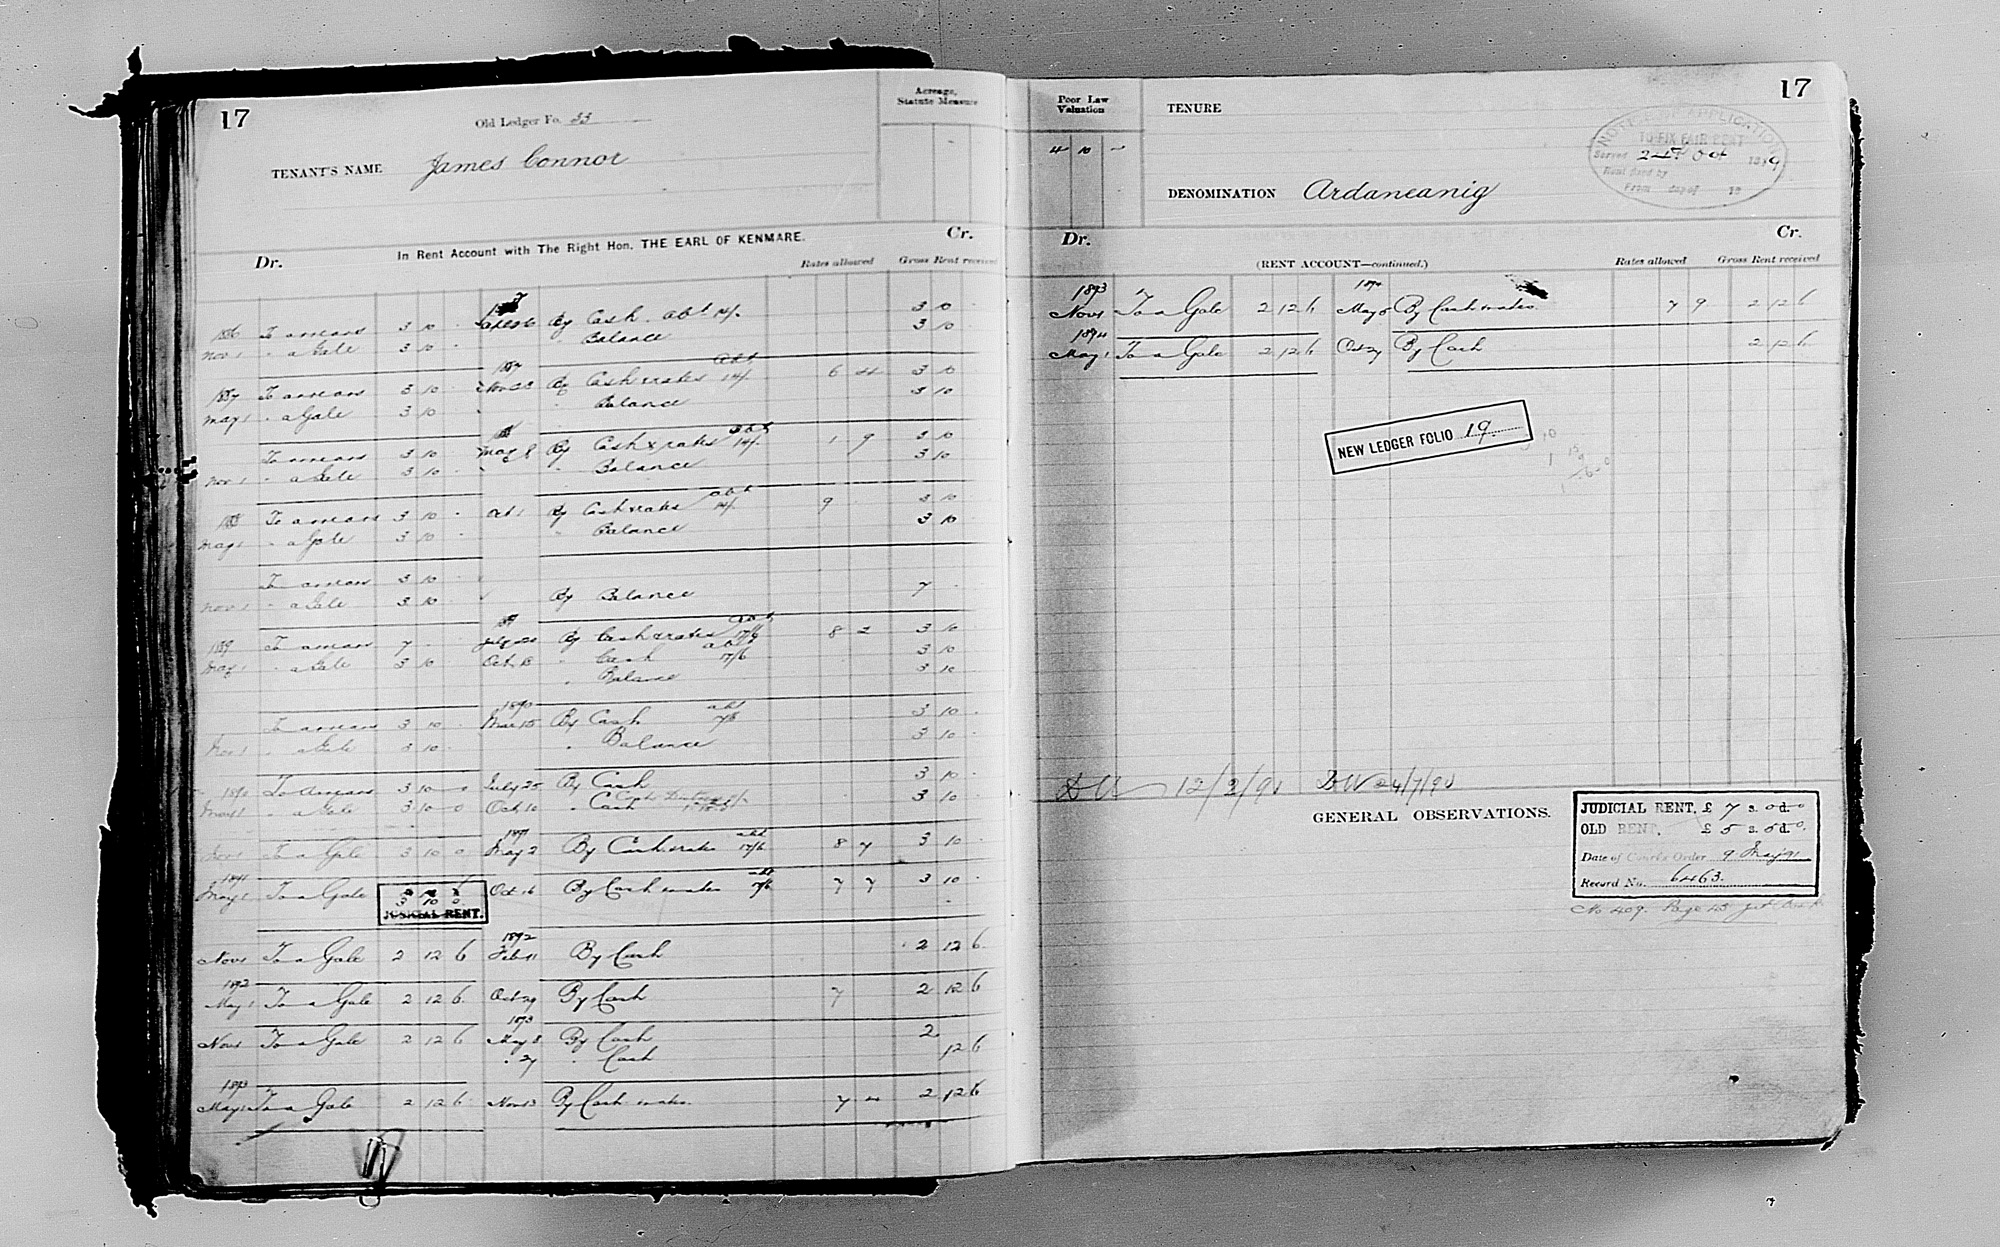 17
Old Ledger Fo. 33
Acreage,
Statute Measure
TENANT'S NAME James Connor
In Rent Account with The Right Hon. THE EARL OF KENMARE.
Dr. Cr.
Rates allowed Gross Rent received
1886 To arrears 3 10 - By Cash abt 14/. 3 10
Nov 1 " a Gale 3 10 - " Balance 3 10
1887
1887 To arrears 3 10 Nov 23 By Cash & rates abt 14/. 6 4 3 10
May 1 " a Gale 3 10 " Balance 3 10
To arrears 3 10 May 8 By Cash & rates abt 14/. 1 9 3 10
Nov 1 " a Gale 3 10 " Balance 3 10
1888 To arrears 3 10 - Oct 1 By Cash & rates abt 14/. 9 3 10
May 1 " a Gale 3 10 - " Balance 3 10
To arrears 3 10 -
Nov 1 " a Gale 3 10 - By Balance 7 -
89
1889 To arrears 7 - July 20 By Cash & rates abt 17/6 8 2 3 10
May 1 " a Gale 3 10 Oct 18 " Cash abt 17/6 3 10
" Balance 3 10
1890
To arrears 3 10 - Mar 15 By Cash abt 17/6 3 10 -
Nov 1 " a Gale 3 10 - " Balance 3 10 -
1890 To Arrears 3 10 0 July 25 By Cash 3 10 -
May 1 " a Gale 3 10 0 Oct 10 " Cash 3 10 -
1891
Nov 1 To a Gale 3 10 0 May 2 By Cash & rates abt 17/6 8 7 3 10 -
1891
May 1 To a Gale 3 10 0 Oct 16 By Cash & rates abt 17/6 7 7 3 10 -
JUDICIAL RENT.
1892
Nov 1 To a Gale 2 12 6 Feb 11 By Cash 2 12 6
1892
May 1 To a Gale 2 12 6 Oct 29 By Cash 7 2 12 6
1893
Nov 1 To a Gale 2 12 6 May 8 By Cash 2
" 27 " Cash 12 6
1893
May 1 To a Gale 2 12 6 Nov 13 By Cash & rates 7 4 2 12 6
17
Poor Law
Valuation
4 10 -
TENURE
NOTICE OF APPLICATION
TO FIX FAIR RENT
Served Oct 18
Rent fixed by
From day of 18
DENOMINATION Ardaneanig
Dr. Cr.
(RENT ACCOUNT—continued.) Rates allowed Gross Rent received
1893 1894
Nov 1 To a Gale 2 12 6 May 5 By Cash & rates 7 9 2 12 6
1894
May 1 To a Gale 2 12 6 Oct 27 By Cash 2 12 6
NEW LEDGER FOLIO 19.
12/3/91 24/7/90
GENERAL OBSERVATIONS.
JUDICIAL RENT, £ 7 s. 0 d. 0
OLD RENT, £ 5 s. 5 d. 0.
Date of Courts Order 9 May 91
Record No. 6463.
No 409. Page 45